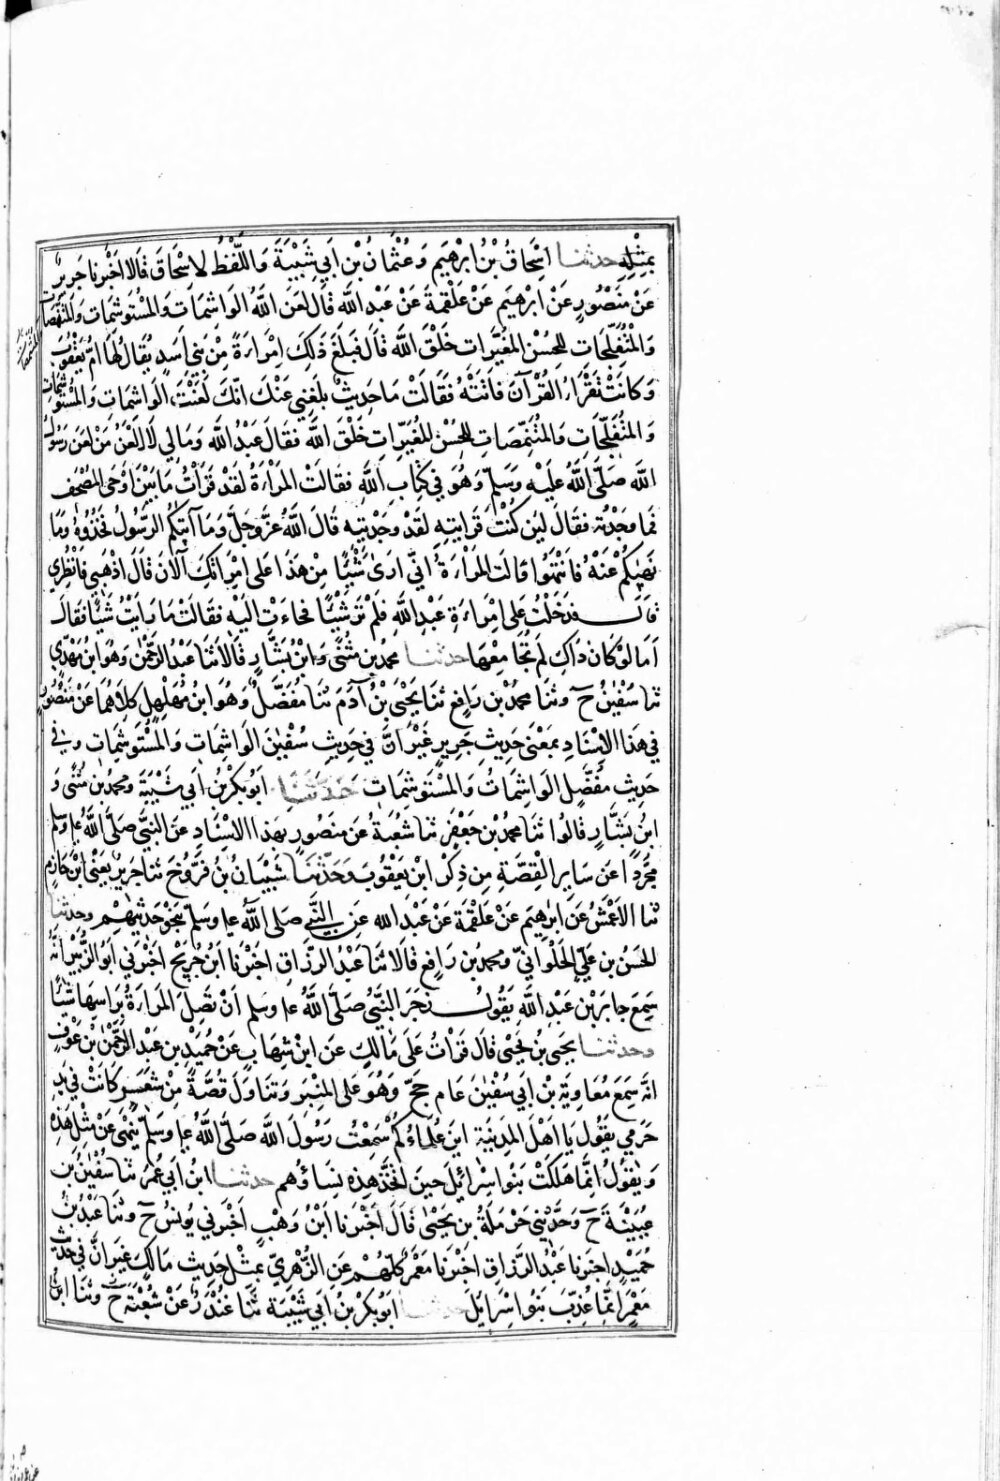 بمثله حدثنا اسحاق بن ابرهيم وعثمان بن ابي شيبة واللفظ لاسحاق قالا اخبرنا جرير
عن منصور عن ابرهيم عن علقمة عن عبد الله قال لعن الله الواشمات والمستوشمات والمتنمصات
والمتفلجات للحسن المغيرات خلق الله قال فبلغ ذلك امراءة من بني اسد يقال لها ام يعقوب
وكانت تقراء القرآن فاتته فقالت ما حديث بلغني عنك انك لعنت الواشمات والمستوشمات
والمتفلجات والمتنمصات للحسن للمغيرات خلق الله فقال عبد الله وما لي لا العن من لعن رسول
الله صلى الله عليه وسلم وهو في كتاب الله فقالت المراءة لقد قرأت ما بين لوحى المصحف
فما وجدته فقال لين كنت قرايتيه لقد وجدتيه قال الله عز وجل وما آتيكم الرسول فخذوه وما
نهيكم عنه فانتهوا قالت المراءة اني ارى شيئا من هذا على امراتك الان قال اذهبي فانظري
قال فدخلت على امراءة عبد الله فلم تر شيئا فجاءت اليه فقالت ما رايت شيئا فقال
اما لو كان ذاك لم نجامعها حدثنا محمد بن مثنى وابن بشار قالا ثنا عبد الرحمن وهو ابن مهدي
ثنا سفين ح وثنا محمد بن رافع ثنا يحيى بن آدم ثنا مفضل وهو ابن مهلهل كلاهما عن منصور
في هذا الاسناد بمعنى حديث جرير غير ان في حديث سفين الواشمات والمستوشمات وفي
حديث مفضل الواشمات والمستوشمات حدثنا ابو بكر بن ابي شيبة ومحمد بن مثنى و
ابن بشار قالوا ثنا محمد بن جعفر ثنا شعبة عن منصور بهذا الاسناد عن النبي صلى الله ع وسلم
مجردا عن ساير القصة من ذكر ابن يعقوب وحدثنا شيبان بن فروخ ثنا جرير يعني ابن حازم
ثنا الاعمش عن ابرهيم عن علقمة عن عبد الله عن النبي صلى الله ع وسلم بنحو حديثهم وحدثنا
الحسن بن علي الحلواني ومحمد بن رافع قالا ثنا عبد الرزاق اخبرنا ابن جريج اخبرني ابو الزبير انه
سمع جابر بن عبد الله يقول زجر النبي صلى الله ع وسلم ان تصل المراءة براسها شيئا
وحدثنا يحيى بن يحيى قال قرات على مالك عن ابن شهاب عن حميد بن عبد الرحمن بن عوف
انه سمع معاوية بن ابي سفين عام حج وهو على المنبر وتناول قصة من شعر كانت في يد
حرمي يقول يا اهل المدينة اين علماءكم سمعت رسول الله صلى الله ع وسلم ينهى عن مثل هذه
ويقول انما هلكت بنو اسرائيل حين اتخذ هذه نساؤهم حدثنا ابن ابي عمر ثنا سفين بن
عيينة ح وحدثني حرملة بن يحيى قال اخبرنا ابن وهب اخبرني يونس ح وثنا عبد بن
حميد اخبرنا عبد الرزاق اخبرنا معمر كلهم عن الزهري بمثل حديث مالك غير ان في حديث
معمر انما عذب بنو اسرايل حدثنا ابو بكر بن ابي شيبة ثنا غندر عن شعبة ح وثنا ابن